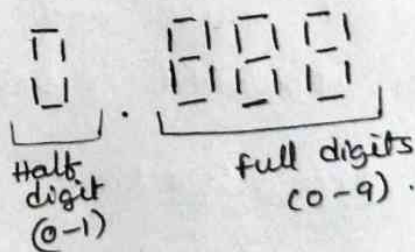 0 . 888
Half digit (0-1)
full digits (0-9).